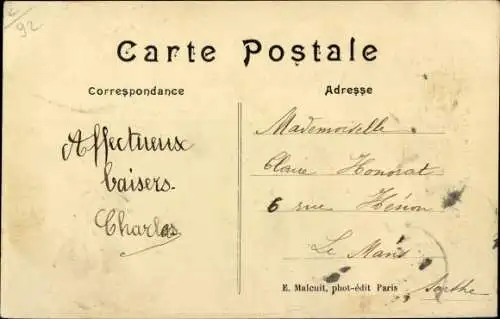 92
Carte Postale
Correspondance
Adresse
Affectueux
baisers.
Charles
Mademoiselle
Claire Honorat
6 rue Hénon
Le Mans
Sarthe
E. Malcuit, phot-édit Paris